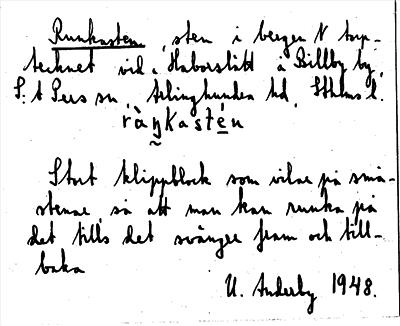 Runkasten, sten i bergen N torp-
tecknet vid Haborslätt å Billby by,
S:t Pers sn, Ärlinghundra hd, Sthlms l.
ràŋkasté̱n
Stort klippblock som vilar på små-
stenar, så att man kan runka på
det tills det svänger fram och till-
baka
U. Anderby 1948.